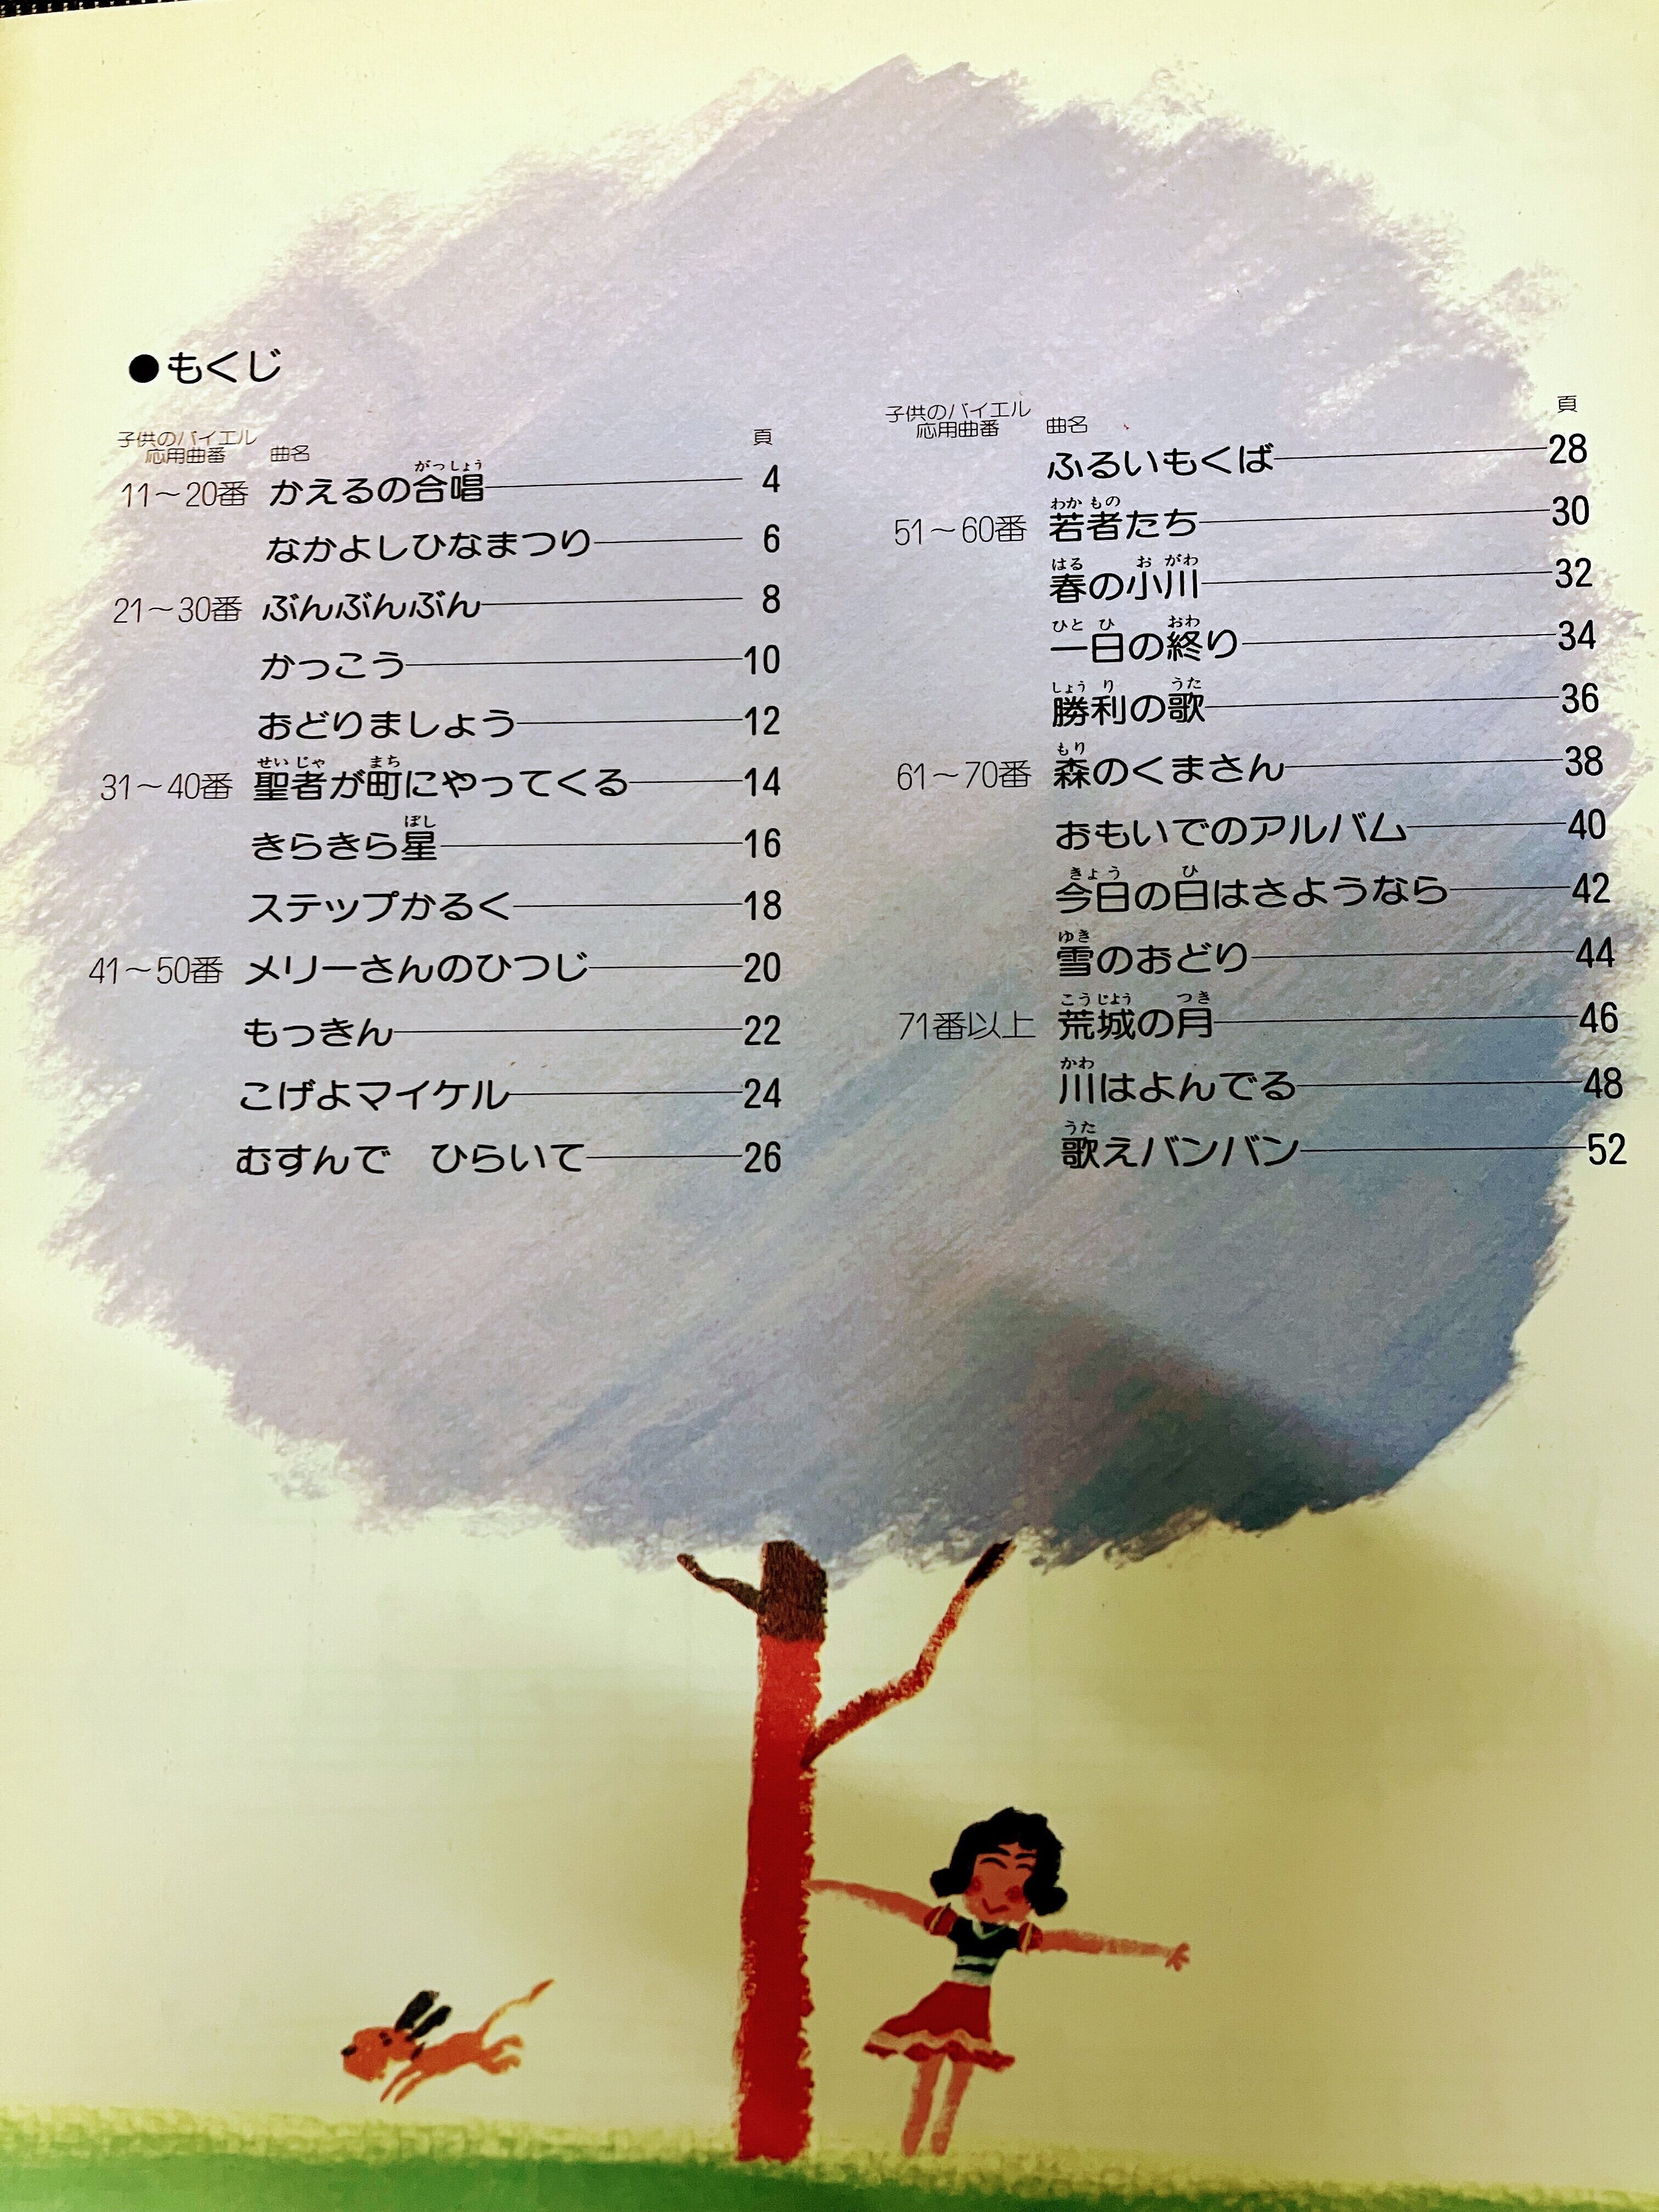 ●もくじ
子供のバイエル
応用曲番 曲名 頁
11～20番 かえるの合唱 4
なかよしひなまつり 6
21～30番 ぶんぶんぶん 8
かっこう 10
おどりましょう 12
31～40番 聖者が町にやってくる 14
きらきら星 16
ステップかるく 18
41～50番 メリーさんのひつじ 20
もっきん 22
こげよマイケル 24
むすんで ひらいて 26
子供のバイエル
応用曲番 曲名 頁
ふるいもくば 28
51～60番 若者たち 30
春の小川 32
一日の終り 34
勝利の歌 36
61～70番 森のくまさん 38
おもいでのアルバム 40
今日の日はさようなら 42
雪のおどり 44
71番以上 荒城の月 46
川はよんでる 48
歌えバンバン 52